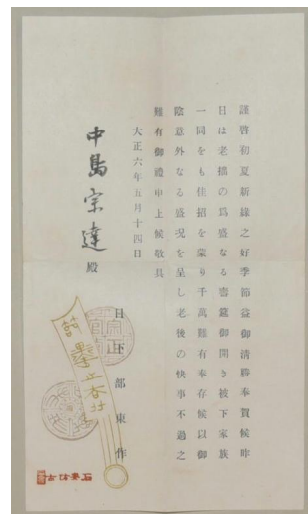 謹啓初夏新緑之好季節益御清勝奉賀候昨
日は老拙の爲盛なる書莚御開き被下家族
一同をも佳招を蒙り千萬難有奉存候以御
陰意外なる盛况を呈し老後の快事不過之
難有御禮申上候敬具
大正六年五月十四日
日下部東作
中島宗達殿